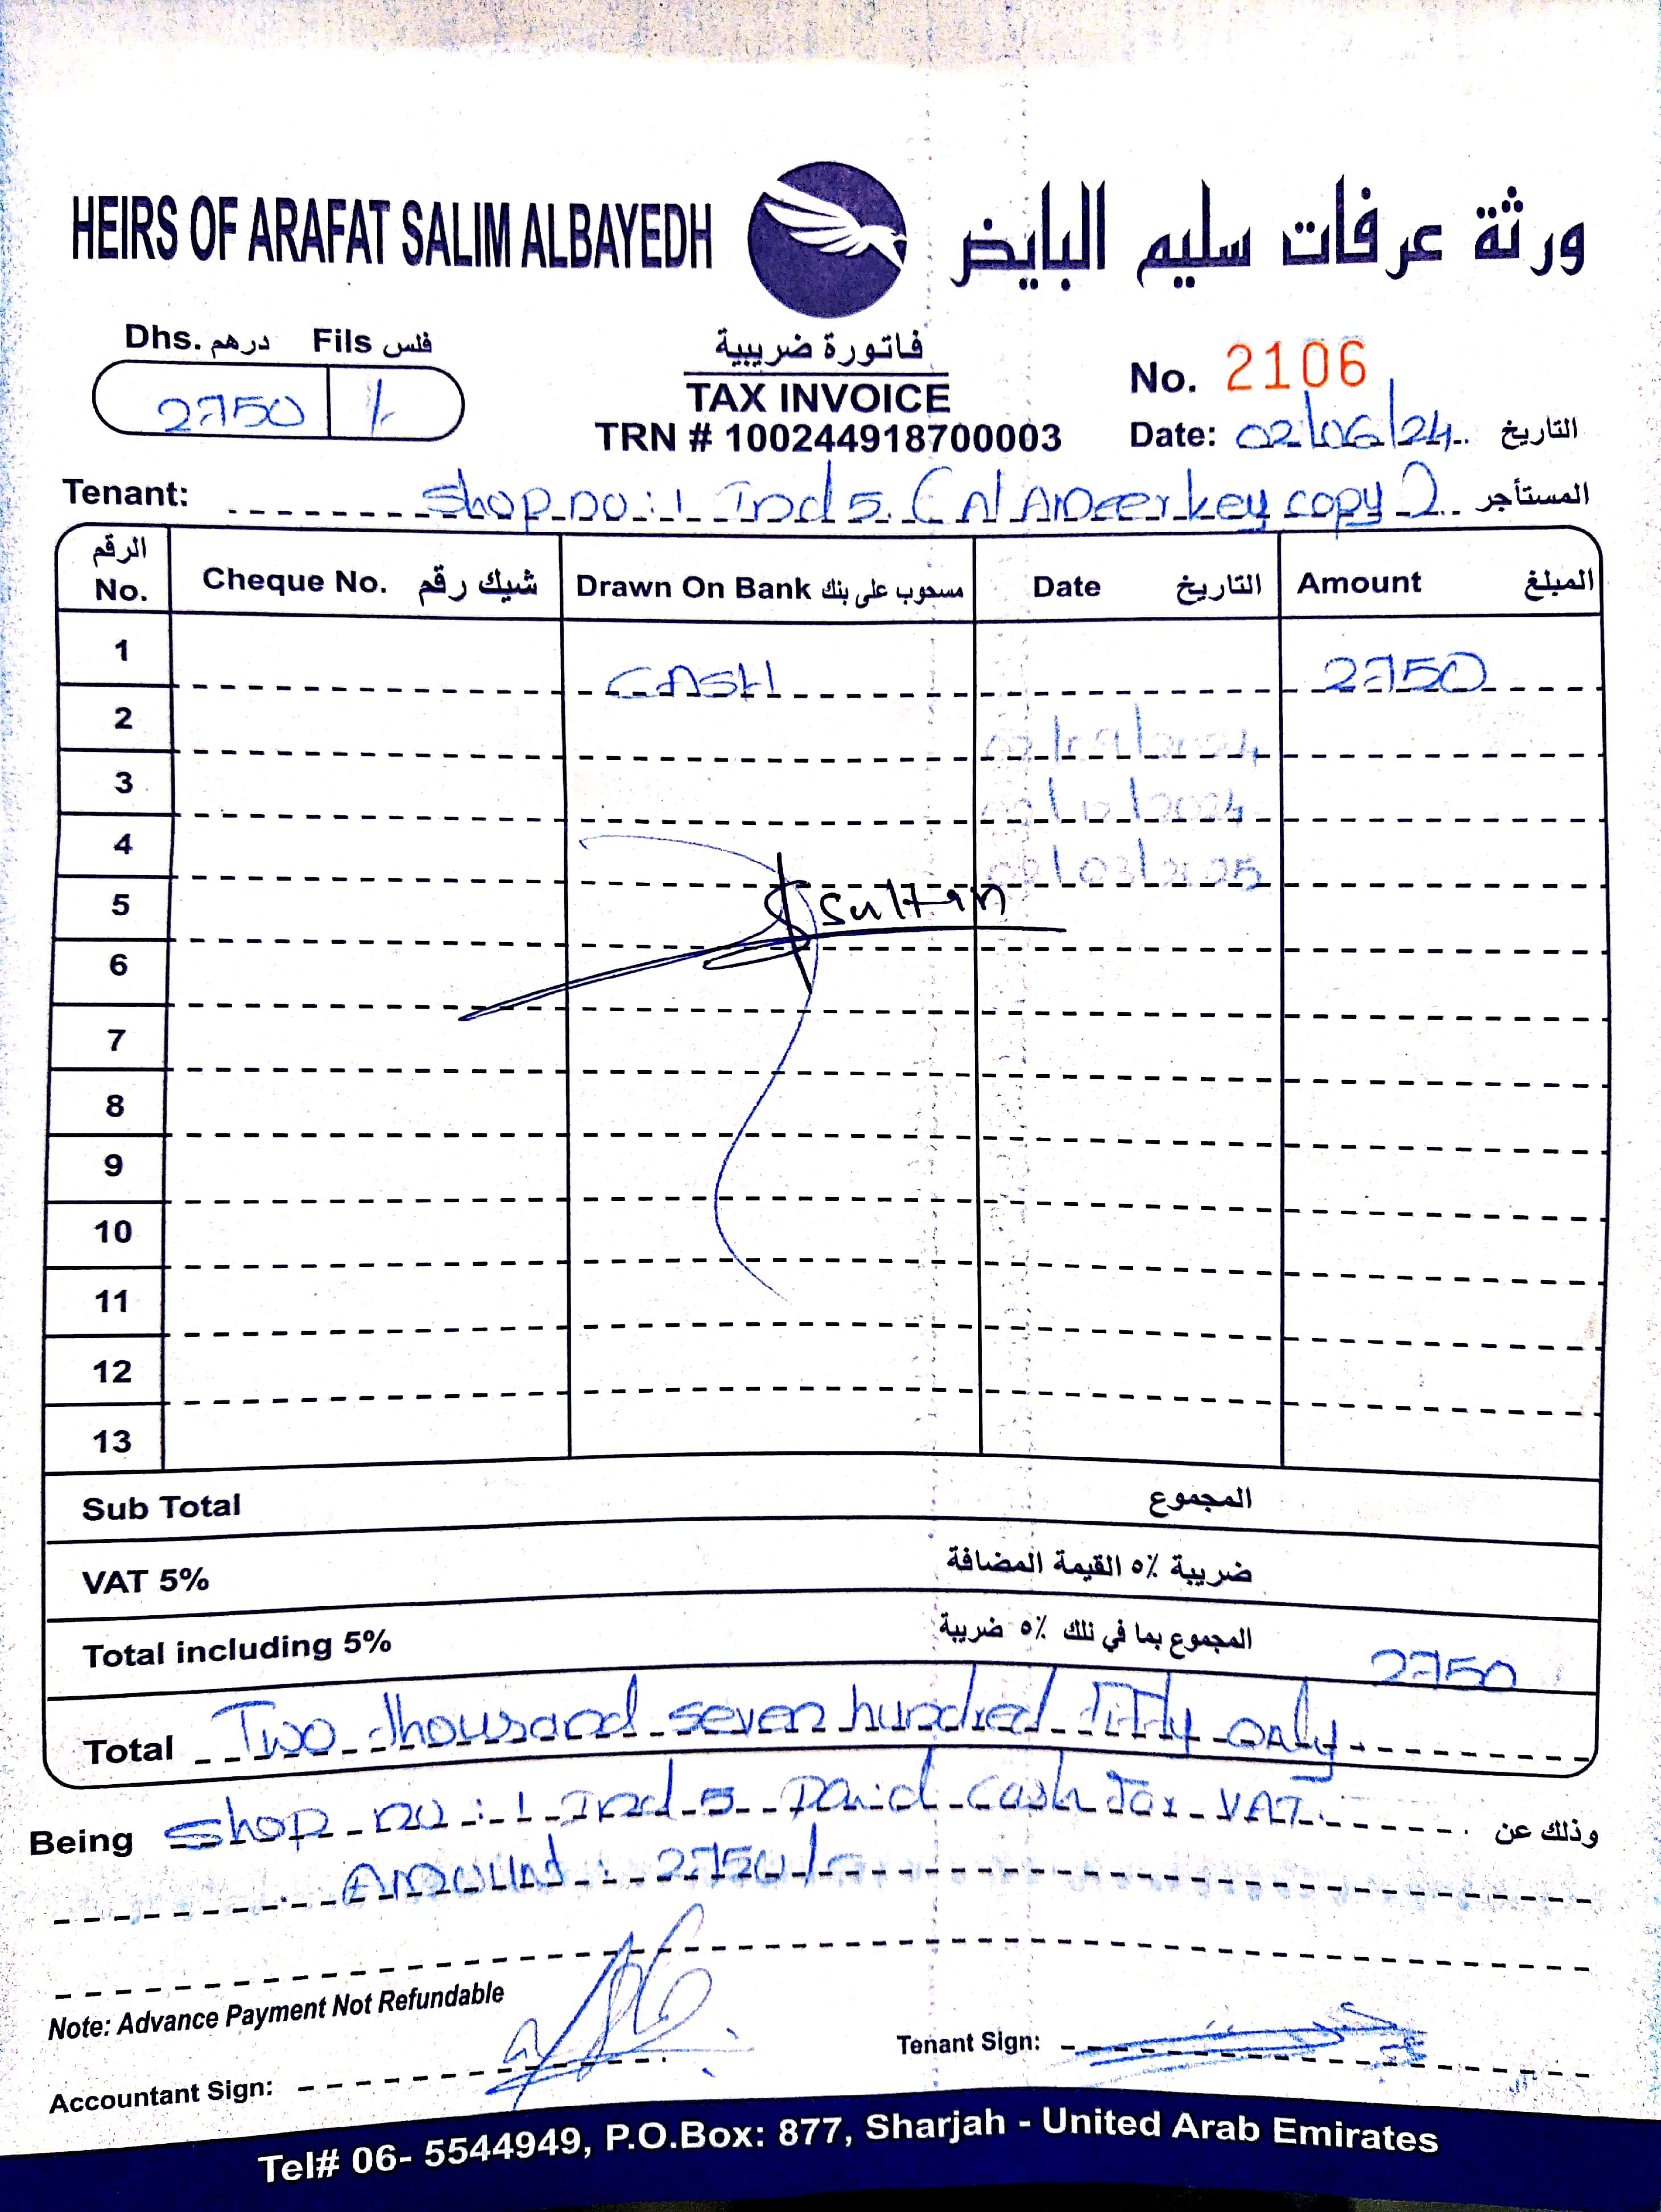 HEIRS OF ARAFAT SALIM ALBAYEDH ورثة عرفات سليم البايض
Dhs. درهم Fils فلس
2750 /-
فاتورة ضريبية
TAX INVOICE
TRN # 100244918700003
No. 2106
Date: 02/06/24 التاريخ
Tenant: Shop no:1 Ind 5 (Al Ameer key copy) المستأجر
الرقم No. Cheque No. شيك رقم Drawn On Bank مسحوب على بنك Date التاريخ Amount المبلغ
1 CASH 2750
2 02/09/2024
3 02/12/2024
4 02/03/2025
5 Sultan
6
7
8
9
10
11
12
13
Sub Total المجموع
VAT 5% ضريبة ٥٪ القيمة المضافة
Total including 5% المجموع بما في ذلك ٥٪ ضريبة 2750
Total Two thousand seven hundred fifty only
Being Shop no:1 Ind 5 Paid cash for VAT وذلك عن
Amount: 2750/-
Note: Advance Payment Not Refundable
Accountant Sign:
Tenant Sign:
Tel# 06- 5544949, P.O.Box: 877, Sharjah - United Arab Emirates